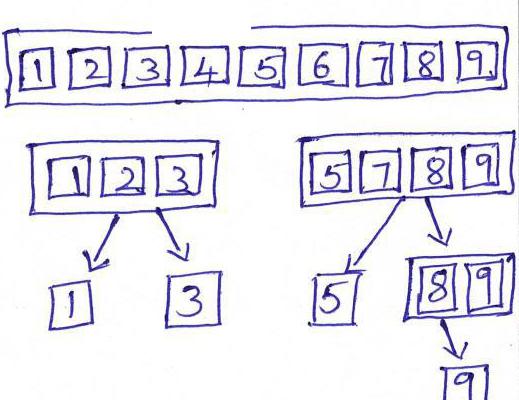 1 2 3 4 5 6 7 8 9
1 2 3 5 7 8 9
1 3 5 8 9
9